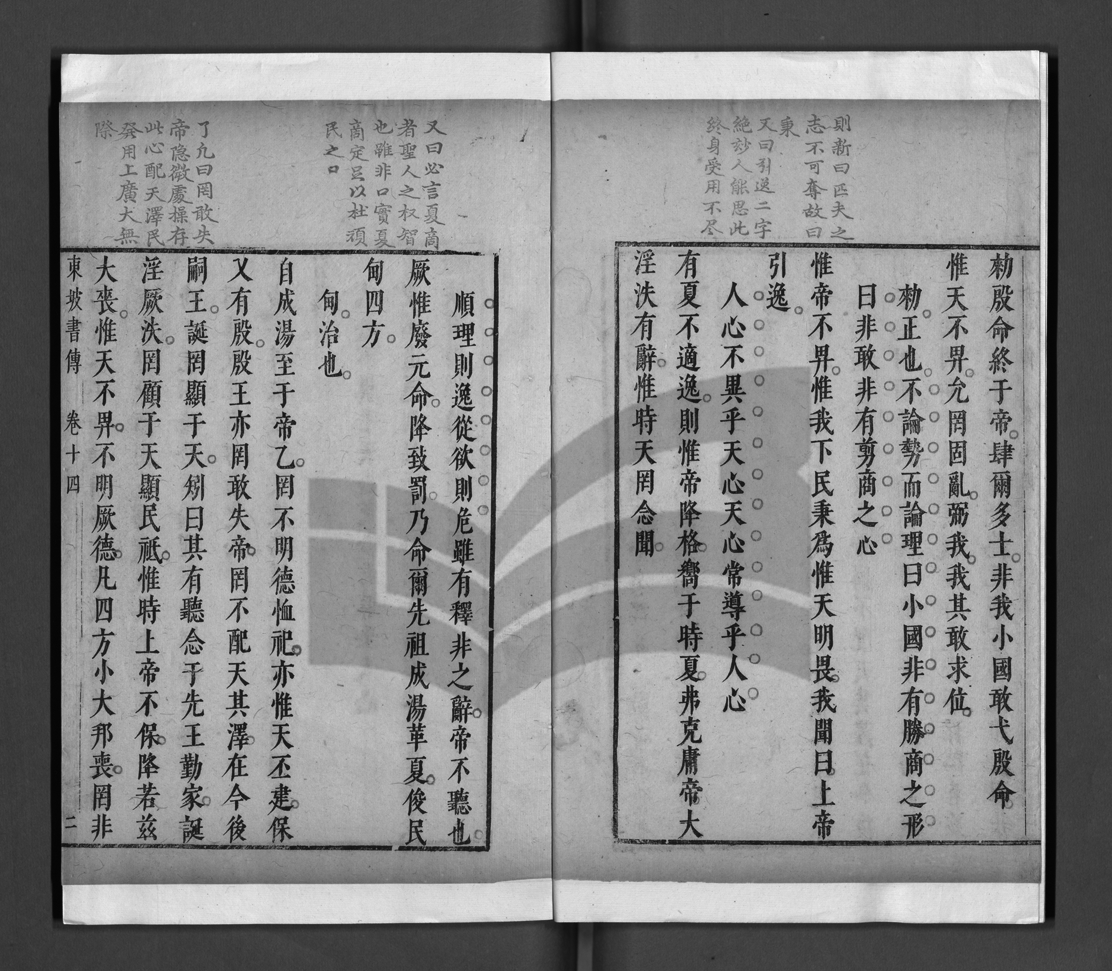 則新曰匹夫之
志不可奪故曰
秉
又曰引逸二字
絕妙人能思此
終身受用不尽
勑殷命終于帝肆爾多士非我小國敢弋殷命
惟天不畀允罔固亂弼我我其敢求位
勑正也不論勢而論理曰小國非有勝商之形
曰非敢非有剪商之心
惟帝不畀惟我下民秉爲惟天明畏我聞曰上帝
引逸
人心不異乎天心天心常導乎人心
有夏不適逸則惟帝降格嚮于時夏弗克庸帝大
淫泆有辭惟時天罔念聞
又曰必言夏商
者聖人之权智
也雖非口實夏
商定足以杜頑
民之口
了凡曰罔敢失
帝隐微處操存
此心配天澤民
發用上廣大無
際
順理則逸從欲則危雖有釋非之辭帝不聽也
厥惟廢元命降致罰乃命爾先祖成湯革夏俊民
甸四方
甸治也
自成湯至于帝乙罔不明德恤祀亦惟天丕建保
又有殷殷王亦罔敢失帝罔不配天其澤在今後
嗣王誕罔顯于天矧曰其有聽念于先王勤家誕
淫厥泆罔顧于天顯民祗惟時上帝不保降若茲
大喪惟天不畀不明厥德凡四方小大邦喪罔非
東坡書傳 卷十四 二